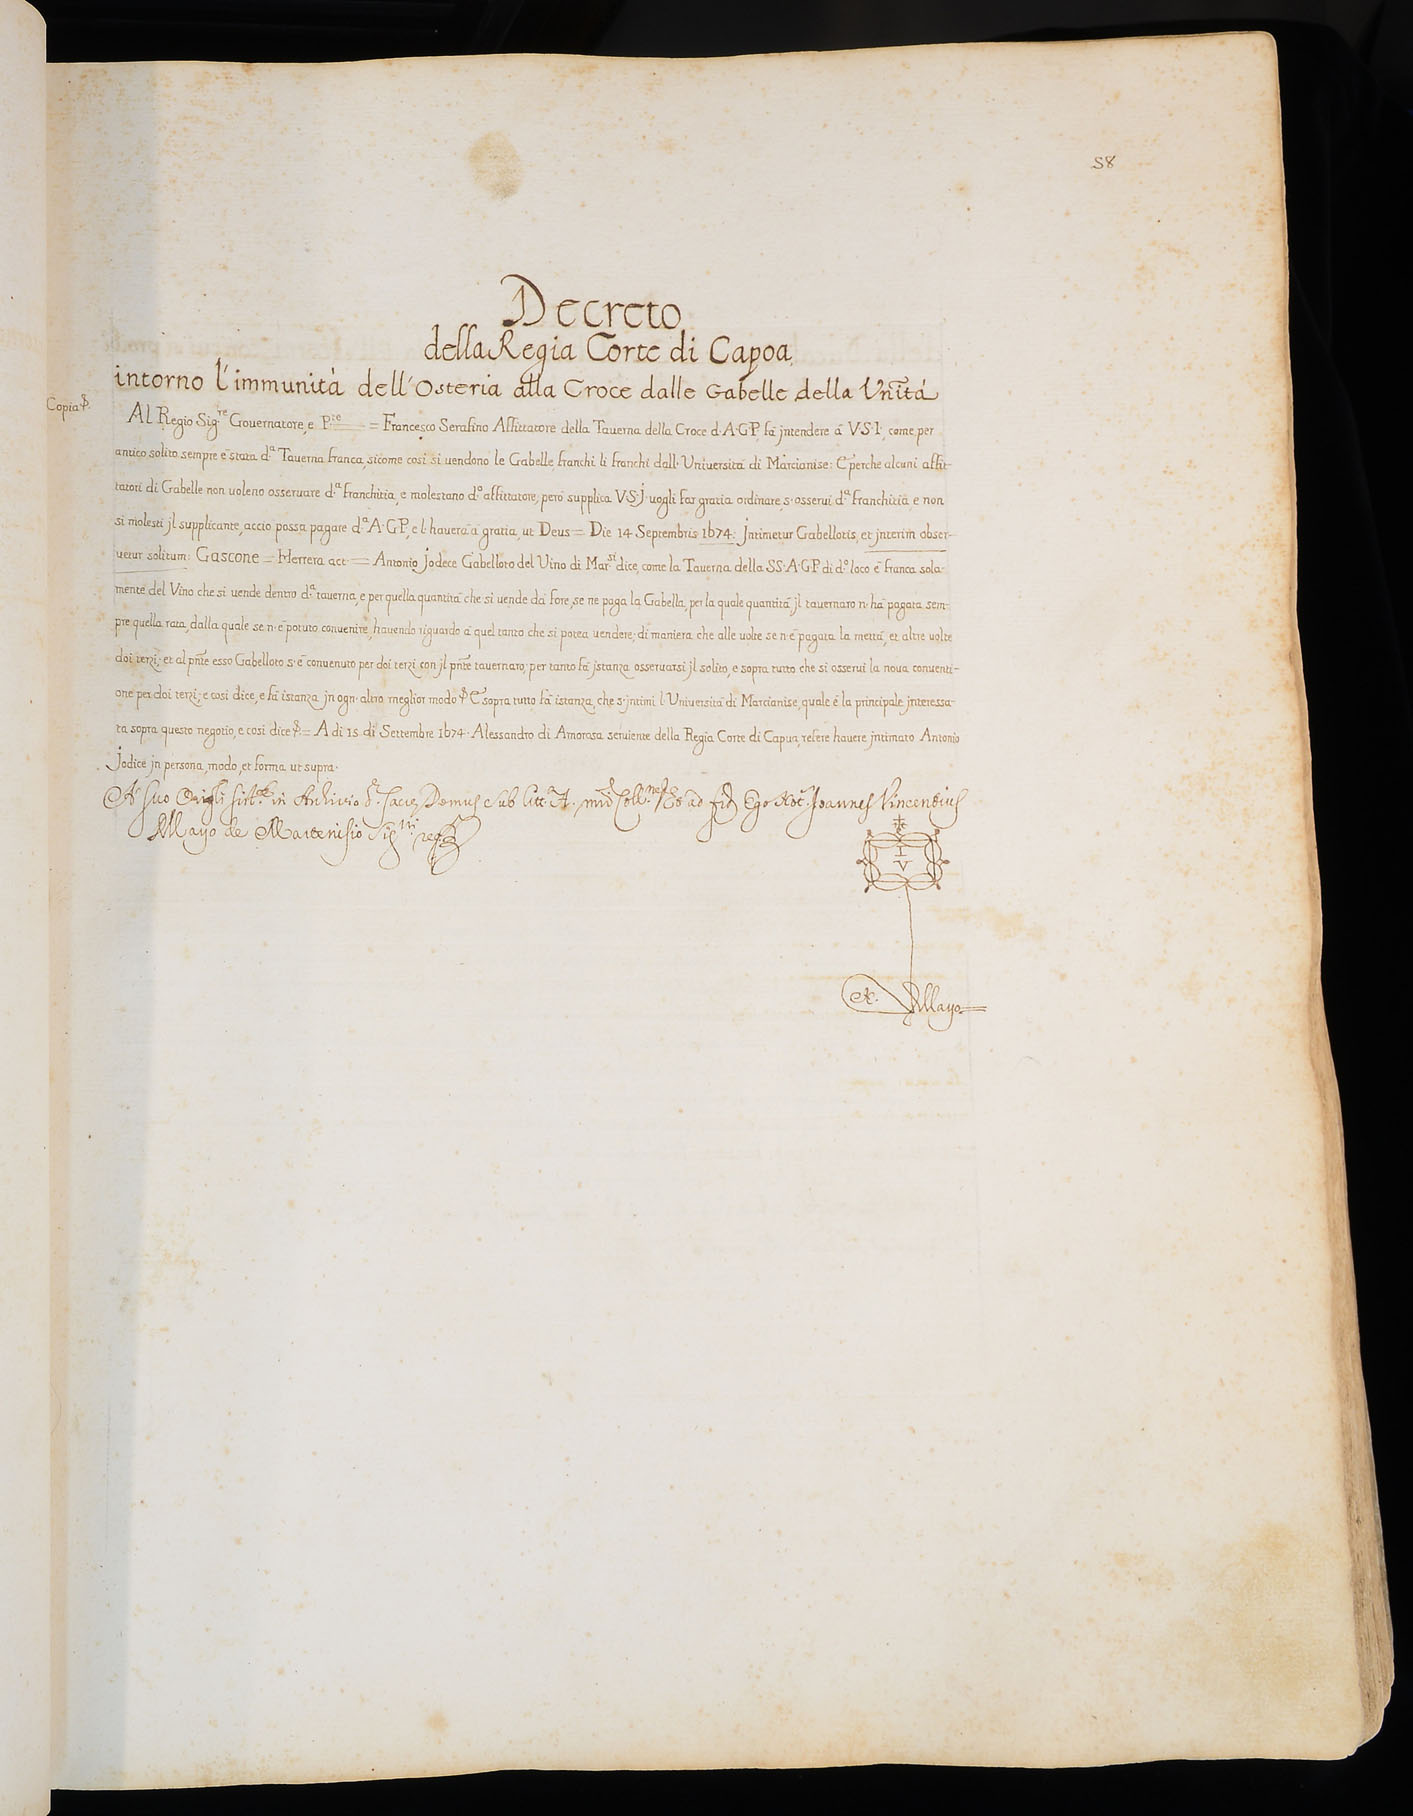 58
Decreto
della Regia Corte di Capoa
intorno l'immunità dell'Osteria alla Croce dalle Gabelle della Unĩtà
Copia
Al Regio Sig.re Gouernatore, e P.re = Francesco Serafino Affittatore della Taverna della Croce d·A·G·P, fà jntendere à V·S·I·, come per
antico solito sempre è stata d.a Taverna franca, sicome così si uendono le Gabelle franchi li franchi dall·Università di Marcianise: E perche alcuni affit-
tatori di Gabelle non uoleno osseruare d.a franchitia, e molestano d.o affittatore, però supplica V·S·J· uogli far gratia ordinare, s·osserui d.a franchitia e non
si molesti jl supplicante, acciò possa pagare d.a A·G·P, e l·hauerà à gratia, ut Deus = Die 14 Septembris 1674· Jntimetur Gabellotis, et jnterim obser-
uetur solitum: Gascone = Herrera act = Antonio Jodece Gabelloto del Vino di Mar.si dice, come la Taverna della SS·A·G·P di d.o loco è franca sola-
mente del Vino che si uende dentro d.a taverna, e per quella quantità che si uende da fore, se ne paga la Gabella, per la quale quantità jl tauernaro n·hà pagata sem-
pre quella rata, dalla quale se n·è potuto conuenire, hauendo riguardo à quel tanto che si potea uendere; di maniera che alle uolte se n·è pagata la mettà, et altre uolte
doi terzi; et al pn̄te esso Gabelloto s·è conuenuto per doi terzi con jl pn̄te tauernaro; per tanto fà jstanza osseruarsi jl solito, e sopra tutto che si osserui la noua conuenti-
one per doi terzi; e così dice, e fà istanza jn ogn·altro meglior modo E sopra tutto fà istanza, che s·jntimi l·Università di Marcianise, quale è la principale jnteressa-
ta sopra questo negotio, e così dice = A di 15 di Settembre 1674· Alessandro di Amorosa seruiente della Regia Corte di Capua, refere hauere jntimato Antonio
Jodice jn persona, modo, et forma ut supra·
A suo in Archivio Domus sub litt.a A. ad Ego Not.s Joannes Vincentius
Mayo de Martenisio
I
V
Mayo